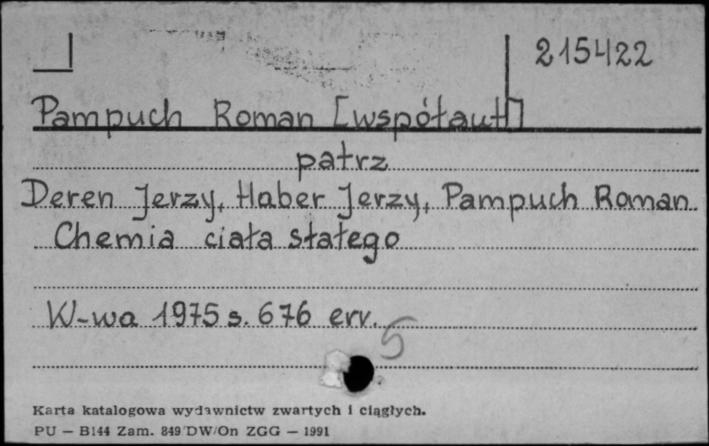 215422
Pampuch Roman [współaut]
patrz
Deren Jerzy, Haber Jerzy, Pampuch Roman
Chemia ciała stałego
W-wa 1975 s. 676 err.
5
Karta katalogowa wydawnictw zwartych i ciągłych.
PU — B144 Zam. 849 DW/On ZGG — 1991